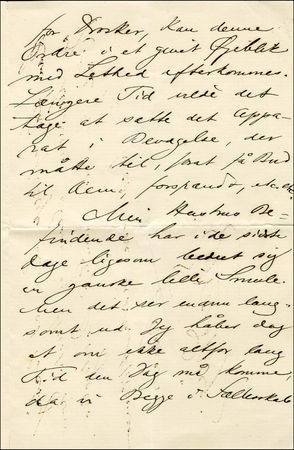 for Drosker, kan denne
Ordre i et givet Øjeblik
med Lethed efterkommes.
Længere Tid vilde det
tage at sætte det Appa-
rat i Bevægelse, der
måtte til, for at få Bud
til forspændt, etc. etc.
Min Hustrus Be-
findende har i de sidste
dage ligesom bedret sig
en ganske lille Smule.
Men det ser endnu lang-
somt ud. Jeg håber dog
at om ikke altfor lang
Tid den Dag må komme,
da vi Begge i Fællesskab